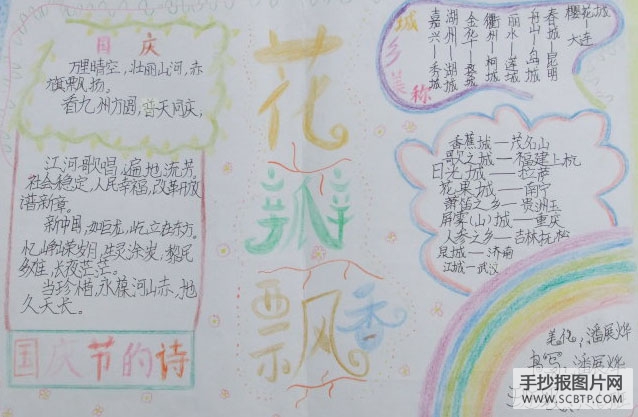 国庆
万里晴空,壮丽山河,赤
旗飘扬。
看九州方圆,普天同庆,
江河歌唱,遍地流芳。
社会稳定,人民幸福,改革开放
谱新章。
新中国,如巨龙,屹立在东方。
忆峥嵘岁月,生灵涂炭,黎民
多难,长夜茫茫。
当珍惜,永葆河山赤,地
久天长。
国庆节的诗
花
瓣
飘香
城乡美称
嘉兴—秀城
湖州—湖城
金华—婺城
衢州—柯城
丽水—莲城
舟山—岛城
春城—昆明
樱花城
大连
香蕉城—茂名山
歌之城—福建上杭
日光城—拉萨
花果城—南宁
萧笛之乡—贵州玉
屏雾(山)城—重庆
人参之乡—吉林抚松
泉城—济南
江城—武汉
美化:潘展烨
书写:潘展烨
手抄报图片网
WWW.SCBTP.COM